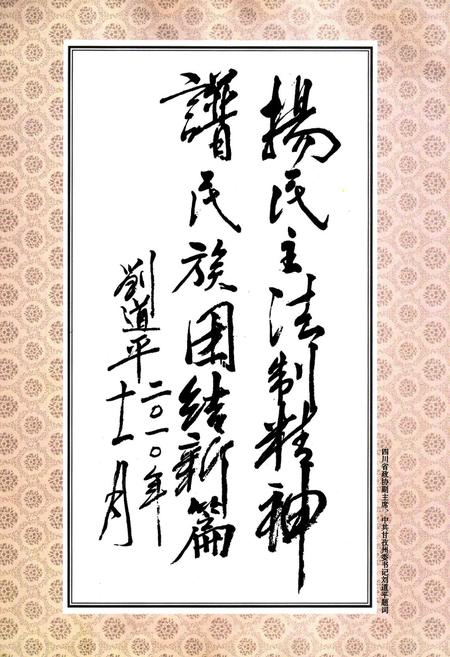 揚民主法制精神
譜民族團结新篇
劉道平
二〇一〇年
十一月
四川省政协副主席、中共甘孜州委书记刘道平题词